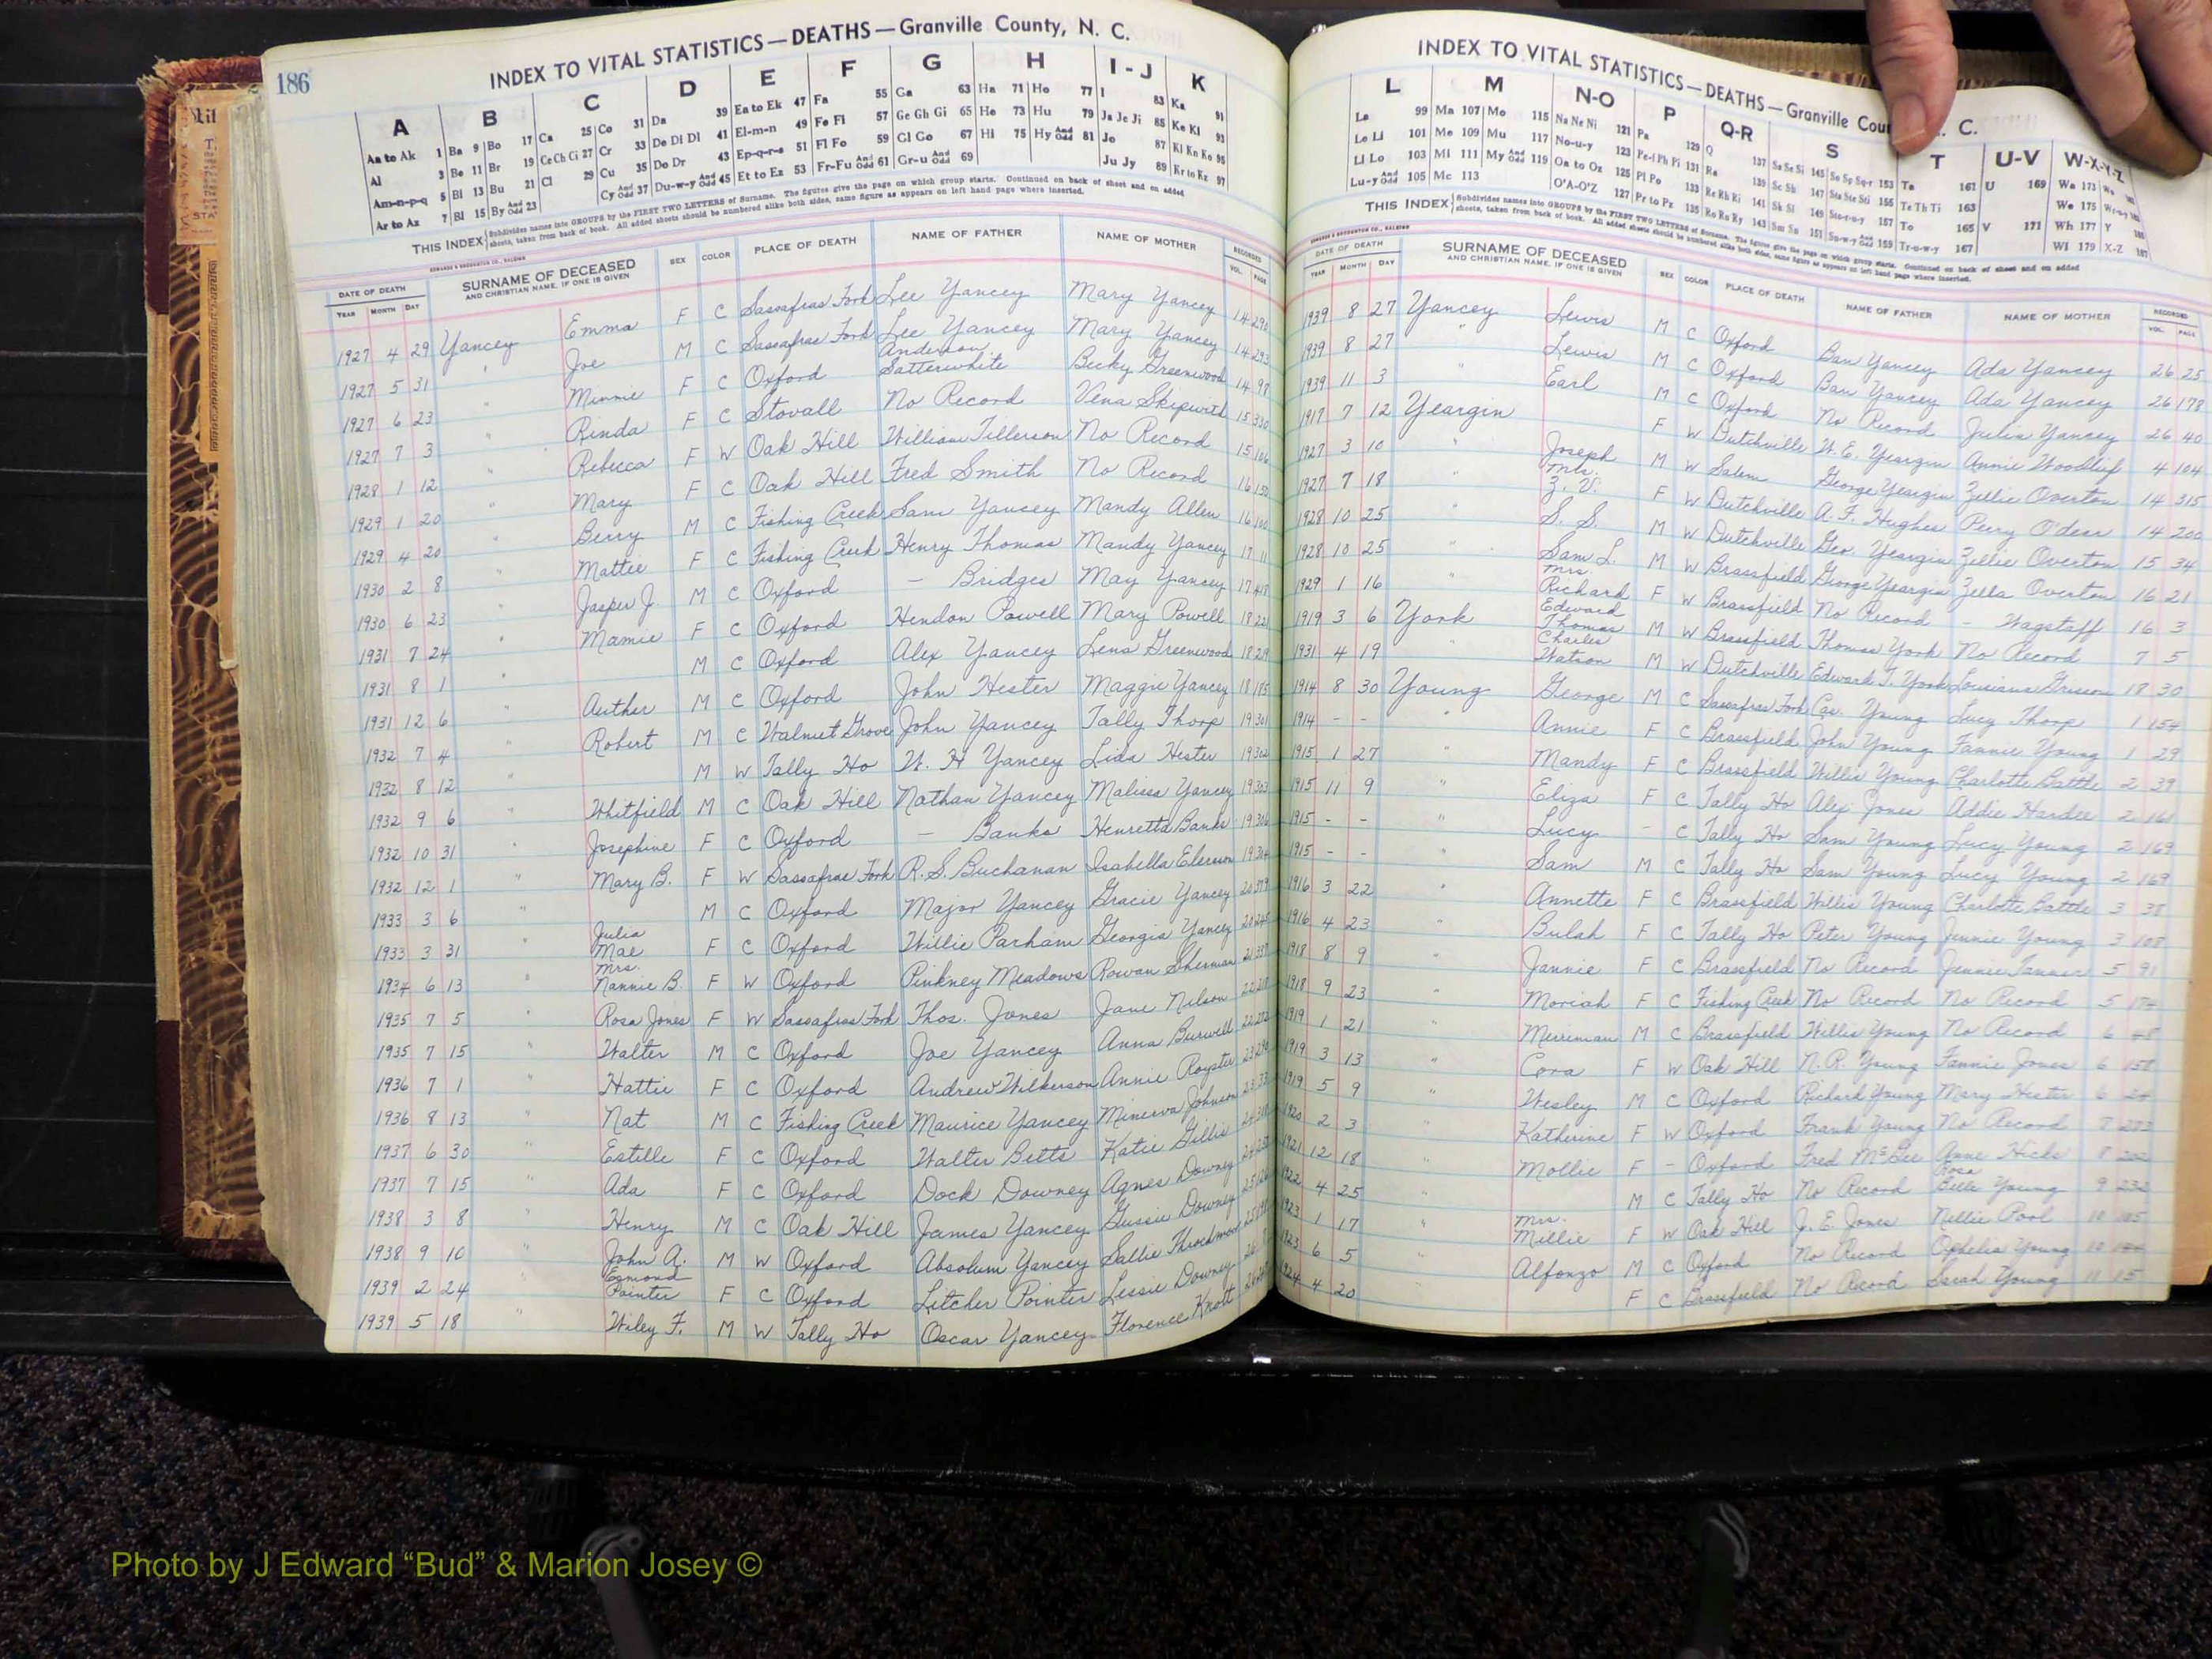 186
INDEX TO VITAL STATISTICS—DEATHS—Granville County, N. C.
A B C D E F G H I-J K
Aa to Ak 1 Ba 9 Bo 17 Ca 25 Co 31 Da 39 Ea to Ek 47 Fa 55 Ga 63 Ha 71 Ho 77 I 83 Ka 91
Al 3 Be 11 Br 19 Ce Ch Ci 27 Cr 33 De Di Dl 41 El-m-n 49 Fe Fi 57 Ge Gh Gi 65 He 73 Hu 79 Ja Je Ji 85 Ke Kl 93
Am-n-p-q 5 Bl 13 Bu 21 Cl 29 Cu 35 Do Dr 43 Ep-q-r-s 51 Fl Fo 59 Gl Go 67 Hi 75 Hy And Odd 81 Jo 87 Kl Kn Ko 95
Ar to Az 7 Bl 15 By And Odd 23 Cy And Odd 37 Du-w-y And Odd 45 Et to Ez 53 Fr-Fu And Odd 61 Gr-u And Odd 69 Ju Jy 89 Kr to Kz 97
THIS INDEX Subdivides names into GROUPS by the FIRST TWO LETTERS of Surname. The figures give the page on which group starts. Continued on back of sheet and on added
sheets, taken from back of book. All added sheets should be numbered alike both sides, same figure as appears on left hand page where inserted.
EDWARDS & BROUGHTON CO., RALEIGH
DATE OF DEATH SURNAME OF DECEASED SEX COLOR PLACE OF DEATH NAME OF FATHER NAME OF MOTHER RECORDED
YEAR MONTH DAY AND CHRISTIAN NAME, IF ONE IS GIVEN VOL. PAGE
1927 4 29 Yancey Emma F C Sassafras Fork Lee Yancey Mary Yancey 14 290
1927 5 31 " Joe M C Sassafras Fork Lee Yancey Mary Yancey 14 293
1927 6 23 " Minnie F C Oxford Anderson Satterwhite Becky Greenwood 14 98
1927 7 3 " Rinda F C Stovall No Record Vena Skipwith 15 330
1928 1 12 " Rebecca F W Oak Hill William Tillerson No Record 15 106
1929 1 20 " Mary F C Oak Hill Fred Smith No Record 16 150
1929 4 20 " Berry M C Fishing Creek Sam Yancey Mandy Allen 16 100
1930 2 8 " Mattie F C Fishing Creek Henry Thomas Mandy Yancey 17 11
1930 6 23 " Jasper J. M C Oxford — Bridges May Yancey 17 418
1931 7 24 " Mamie F C Oxford Hendon Powell Mary Powell 18 221
1931 8 1 " M C Oxford Alex Yancey Lena Greenwood 18 219
1931 12 6 " Auther M C Oxford John Hester Maggie Yancey 18 185
1932 7 4 " Robert M C Walnut Grove John Yancey Tally Thorp 19 301
1932 8 12 " M W Tally Ho W. H Yancey Lida Hester 19 302
1932 9 6 Whitfield M C Oak Hill Nathan Yancey Malissa Yancey 19 303
1932 10 31 Josephine F C Oxford — Banks Henretta Banks 19 306
1932 12 1 " Mary B. F W Sassafras Fork R. S. Buchanan Isabella 19 304
1933 3 6 " M C Oxford Major Yancey Gracie Yancey 20 379
1933 3 31 " Julia Mae F C Oxford Willie Parham Georgia Yancey 20 245
1934 6 13 " Mrs. Nannie B. F W Oxford Pinkney Meadows Rowan Sherman 21 337
1935 7 5 " Rosa Jones F W Sassafras Fork Thos. Jones Jane Nelson
1935 7 15 " Walter M C Oxford Joe Yancey Anna Burwell 22 272
1936 7 1 " Hattie F C Oxford Andrew Wilkerson Annie Royster 23 290
1936 8 13 " Nat M C Fishing Creek Maurice Yancey Minerva Johnson
1937 6 30 " Estelle F C Oxford Walter Betts Katie Gillis
1937 7 15 " Ada F C Oxford Dock Downey Agnes Downey
1938 3 8 " Henry M C Oak Hill James Yancey Gussie Downey
1938 9 10 " John A. M W Oxford Absolum Yancey Sallie
1939 2 24 " Esmond Pointer F C Oxford Letcher Pointer Lessie Downey
1939 5 18 " Wiley F. M W Tally Ho Oscar Yancey Florence Knott
INDEX TO VITAL STATISTICS—DEATHS—Granville Coun C.
L M N-O P Q-R S T U-V W-X-Y-Z
La 99 Ma 107 Mo 115 Na Ne Ni 121 Pa 129 Q 137 Sa Se Si 145 So Sp Sq-r 153 Ta 161 U 169 Wa 173
Le Li 101 Me 109 Mu 117 No-u-y 123 Pe-i Ph Pi 131 Ra 139 Sc Sh 147 Sta Ste Sti 155 Te Th Ti 163 We 175
Ll Lo 103 Mi 111 My And Odd 119 Oa to Oz 125 Pl Po 133 Re Rh Ri 141 Sk Sl 149 Sto-r-u-y 157 To 165 V 171 Wh 177 Y
Lu-y And Odd 105 Mc 113 O'A-O'Z 127 Pr to Pz 135 Ro Ru Ry 143 Sm Sn 151 Su-w-y And Odd 159 Tr-u-w-y 167 Wi 179 X-Z 187
THIS INDEX Subdivides names into GROUPS by the FIRST TWO LETTERS of Surname. The figures give the page on which group starts. Continued on back of sheet and on added
sheets, taken from back of book. All added sheets should be numbered alike both sides, same figure as appears on left hand page where inserted.
EDWARDS & BROUGHTON CO., RALEIGH
DATE OF DEATH SURNAME OF DECEASED SEX COLOR PLACE OF DEATH NAME OF FATHER NAME OF MOTHER RECORDED
YEAR MONTH DAY AND CHRISTIAN NAME, IF ONE IS GIVEN VOL. PAGE
1939 8 27 Yancey Lewis M C Oxford Ban Yancey Ada Yancey 26 25
1939 8 27 " Lewis M C Oxford Ban Yancey Ada Yancey 26 178
1939 11 3 Earl M C Oxford No Record Julia Yancey 26 40
1917 7 12 Yeargin F W Dutchville W. E. Yeargin Annie Woodlief 4 104
1927 3 10 " Joseph M W Salem George Yeargin Zellie Overton 14 315
1927 7 18 " Mrs. Z. V. F W Dutchville A. F. Hughes Perry O'dear 14 200
1928 10 25 " S. S. M W Dutchville Geo. Yeargin Zellie Overton 15 34
1928 10 25 " Sam L. M W Brassfield George Yeargin Zella Overton 16 21
1929 1 16 " Mrs. Richard F W Brassfield No Record - Wagstaff 16 3
1919 3 6 York Edward Thomas M W Brassfield Thomas York No Record 7 5
1931 4 19 " Charles Watson M W Dutchville Edward T. York Louisiana Grissom 18 30
1914 8 30 Young George M C Sassafras Fork Cas. Young Lucy Thorp 1 154
1914 - - " Annie F C Brassfield John Young Fannie Young 1 29
1915 1 27 " Mandy F C Brassfield Willis Young Charlotte Battle 2 39
1915 11 9 " Eliza F C Tally Ho Alex Jones Addie Hardee 2 161
1915 - - " Lucy - C Tally Ho Sam Young Lucy Young 2 169
1915 - - " Sam M C Tally Ho Sam Young Lucy Young 2 169
1916 3 22 " Annette F C Brassfield Willis Young Charlotte Battle 3 38
1916 4 23 " Bulah F C Tally Ho Peter Young Jennie Young 3 108
1918 8 9 " Jannie F C Brassfield No Record Jennie Tanner 5 91
1918 9 23 " Moriah F C Fishing Creek No Record No Record 5 174
1919 1 21 " Merriman M C Brassfield Willis Young No Record 6 48
1919 3 13 " Cora F W Oak Hill N. R. Young Fannie Jones 6 158
1919 5 9 " Wesley M C Oxford Richard Young Mary Hester 6
1920 2 3 " Katherine F W Oxford Frank Young No Record 7
1921 12 18 " Mollie F - Oxford Fred McGee Anne Hicks 8
1922 4 25 " M C Tally Ho No Record Rosa Belle Young 9 232
1923 1 17 " Mrs. Millie F W Oak Hill J. E. Jones Nellie Pool 10
1923 6 5 Alfonzo M C Oxford No Record Ophelia Young 10
1924 4 20 F C Brassfield No Record Sarah Young 11 15
Photo by J Edward “Bud” & Marion Josey ©